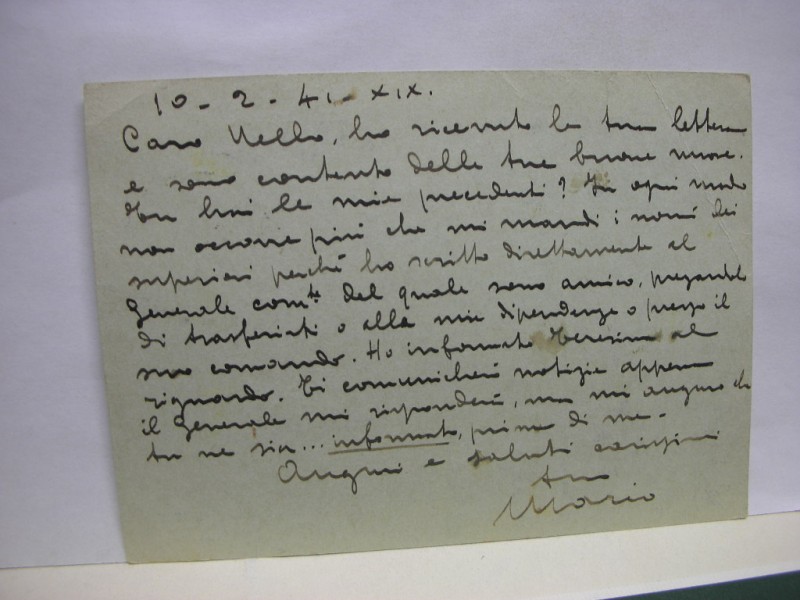 10 - 2 - 41 - XIX.
Caro Nello, ho ricevuto la tua lettera
e sono contento delle tue buone nuove.
Tu hai le mie precedenti? In ogni modo
non occorre più che mi mandi i nomi dei
superiori perché ho scritto direttamente al
Generale com.te del quale sono amico, pregandolo
di trasferirti o alla mia dipendenza o presso il
suo comando. Ho informato Teresina al
riguardo. Ti comunicherò notizie appena
il Generale mi risponderà, ma mi auguro che
tu ne sia... informato, prima di me.
Auguri e saluti carissimi
tuo
Mario